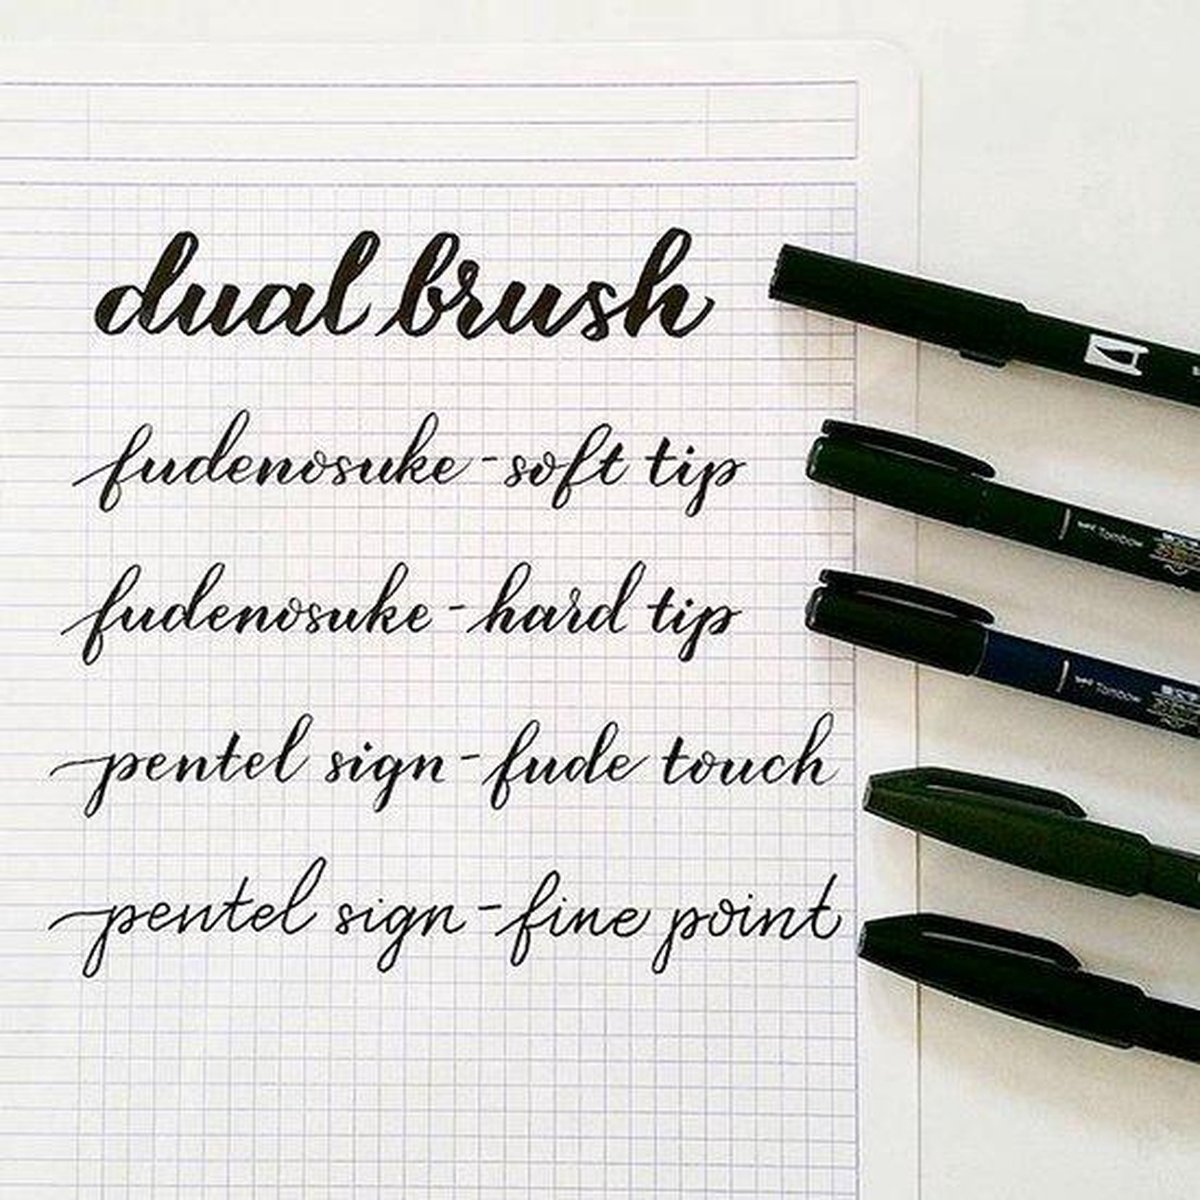 dual brush
fudenosuke-soft tip
Tombow
fudenosuke-hard tip
Tombow
pentel sign-fude touch
pentel sign-fine point